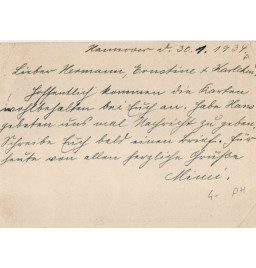 Hannover d. 30.1.1934.
Lieber Hermann, Ernstine +
Hoffentlich kommen die Karten
wohlbehalten bei Euch an. Habe Hans
gebeten uns mal Nachricht zu geben.
Schreibe Euch bald einen Brief. Für
heute von allen herzliche Grüße
Mimi.